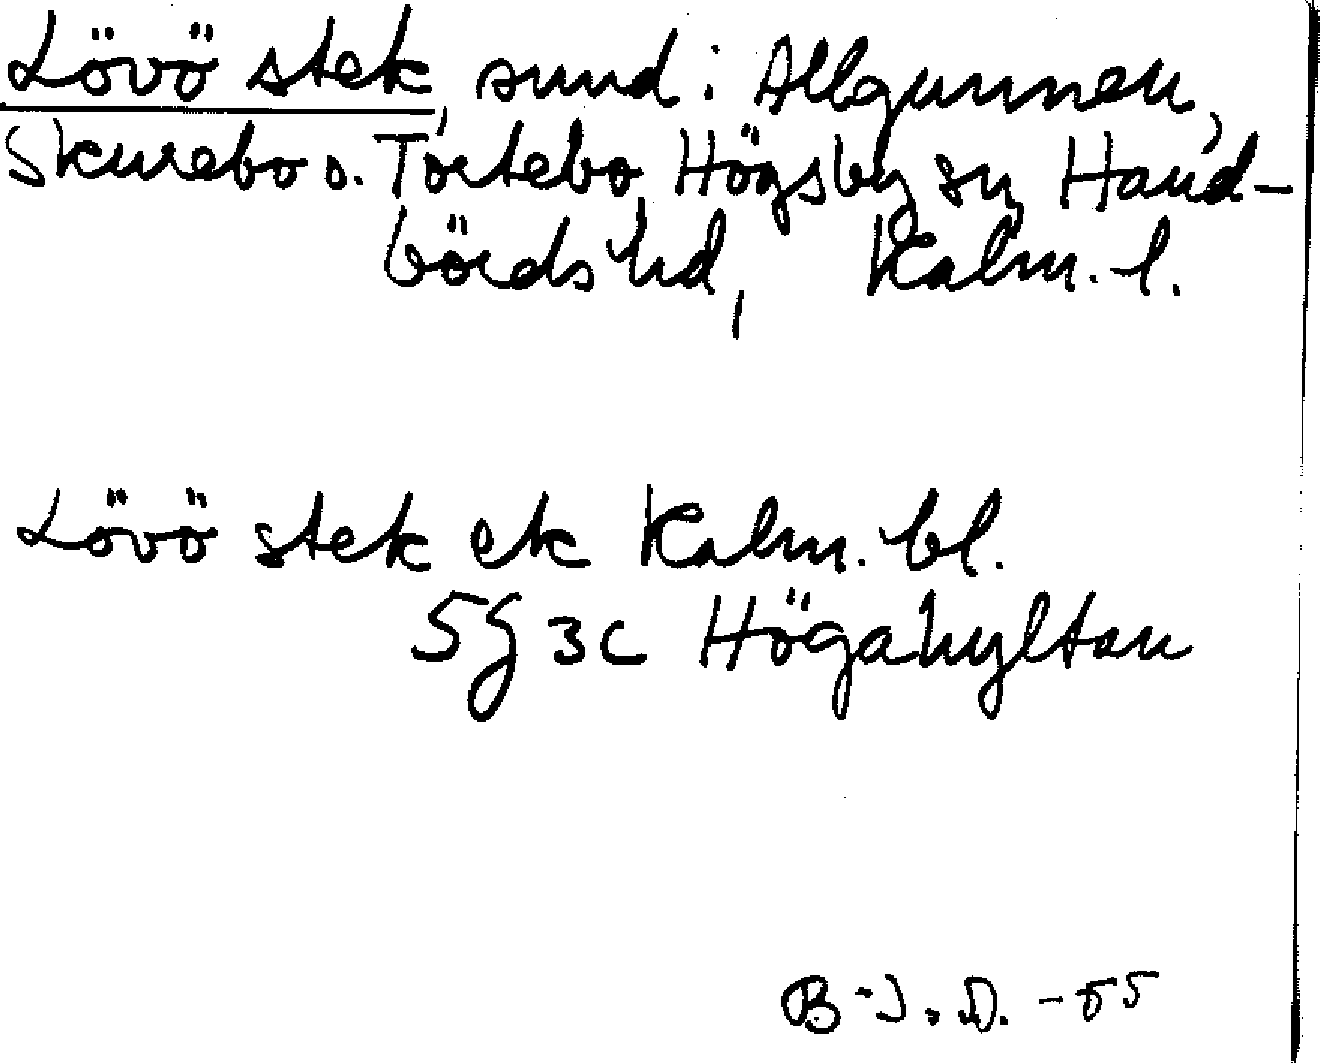 Lövö stek, sund i Allgunnen,
Skurebo o. Tortebo Högsby sn, Hand-
bördshd, Kalm. l.
Lövö stek ek Kalm. bl.
5G 3c Högahyltan
B-J.D. -55